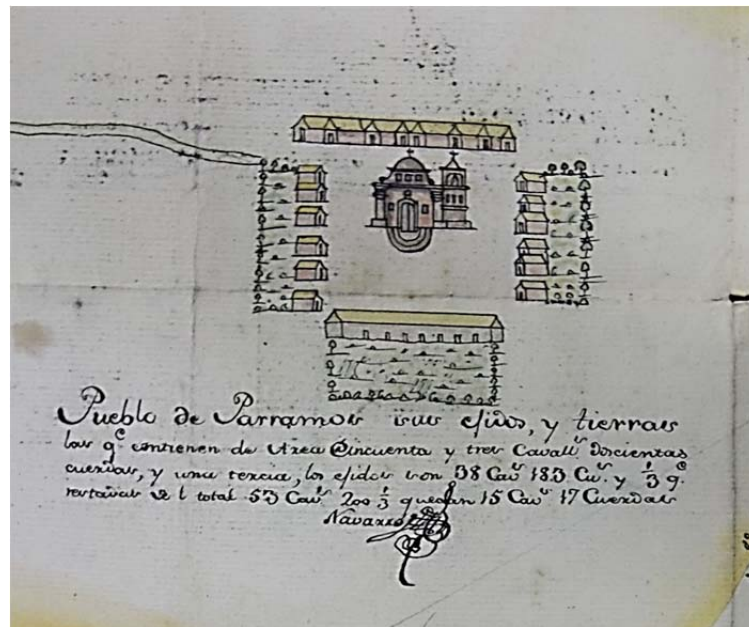 Pueblo de Parramos sus ejidos, y tierras
las q.e contienen de Area Cincuenta y tres Cavall.s Doscientas
cuerdas, y una tercia, los ejidos son 38 Cav.s 183 Cu.s y 1/3 q.e
restadas del total 53 Cav.s 200 1/3 quedan 15 Cav.s 17 Cuerdas
Navarro